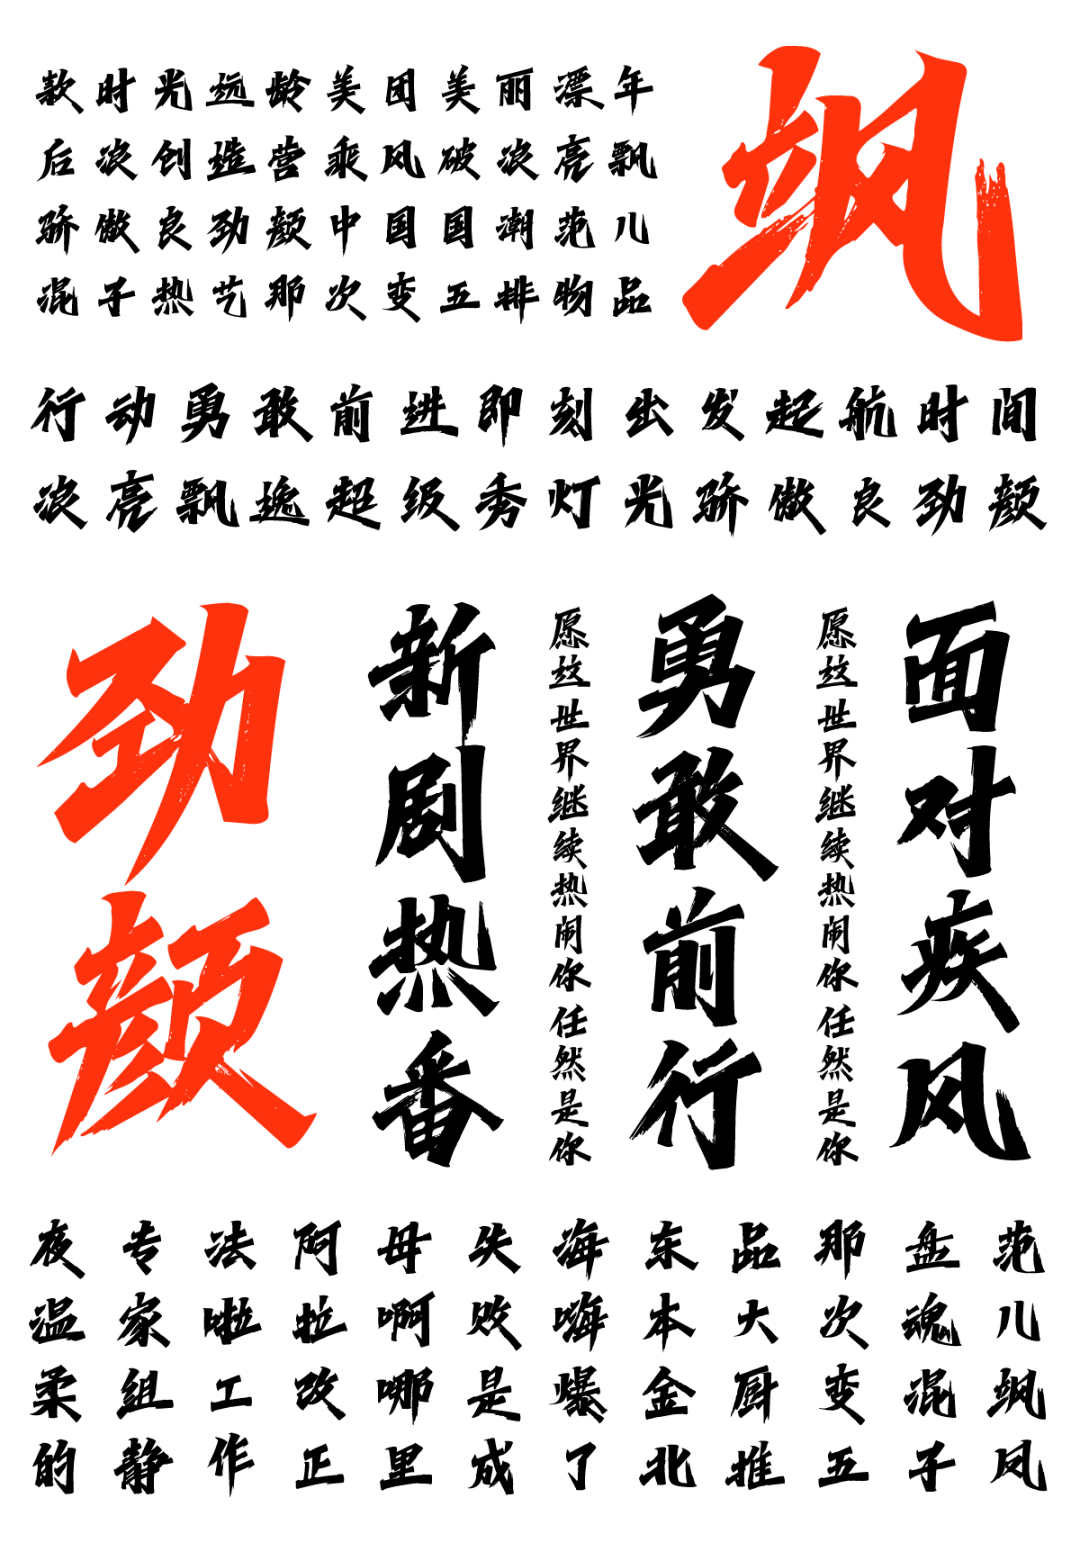 款时光远龄美团美丽漂年
后浪创造营乘风破浪亮飘
骄傲良劲颜中国国潮范儿
混子热艺那次变五排物品
飒
行动勇敢前进即刻出发起航时间
浪亮飘逸超级秀灯光骄傲良劲颜
面对疾风
愿这世界继续热闹你任然是你
勇敢前行
愿这世界继续热闹你任然是你
新剧热番
劲颜
夜专法阿母失海东品那盘范
温家啦拉啊败嗨本大次魂儿
柔组工改哪是爆金厨变混飒
的静作正里成了北推五子凤